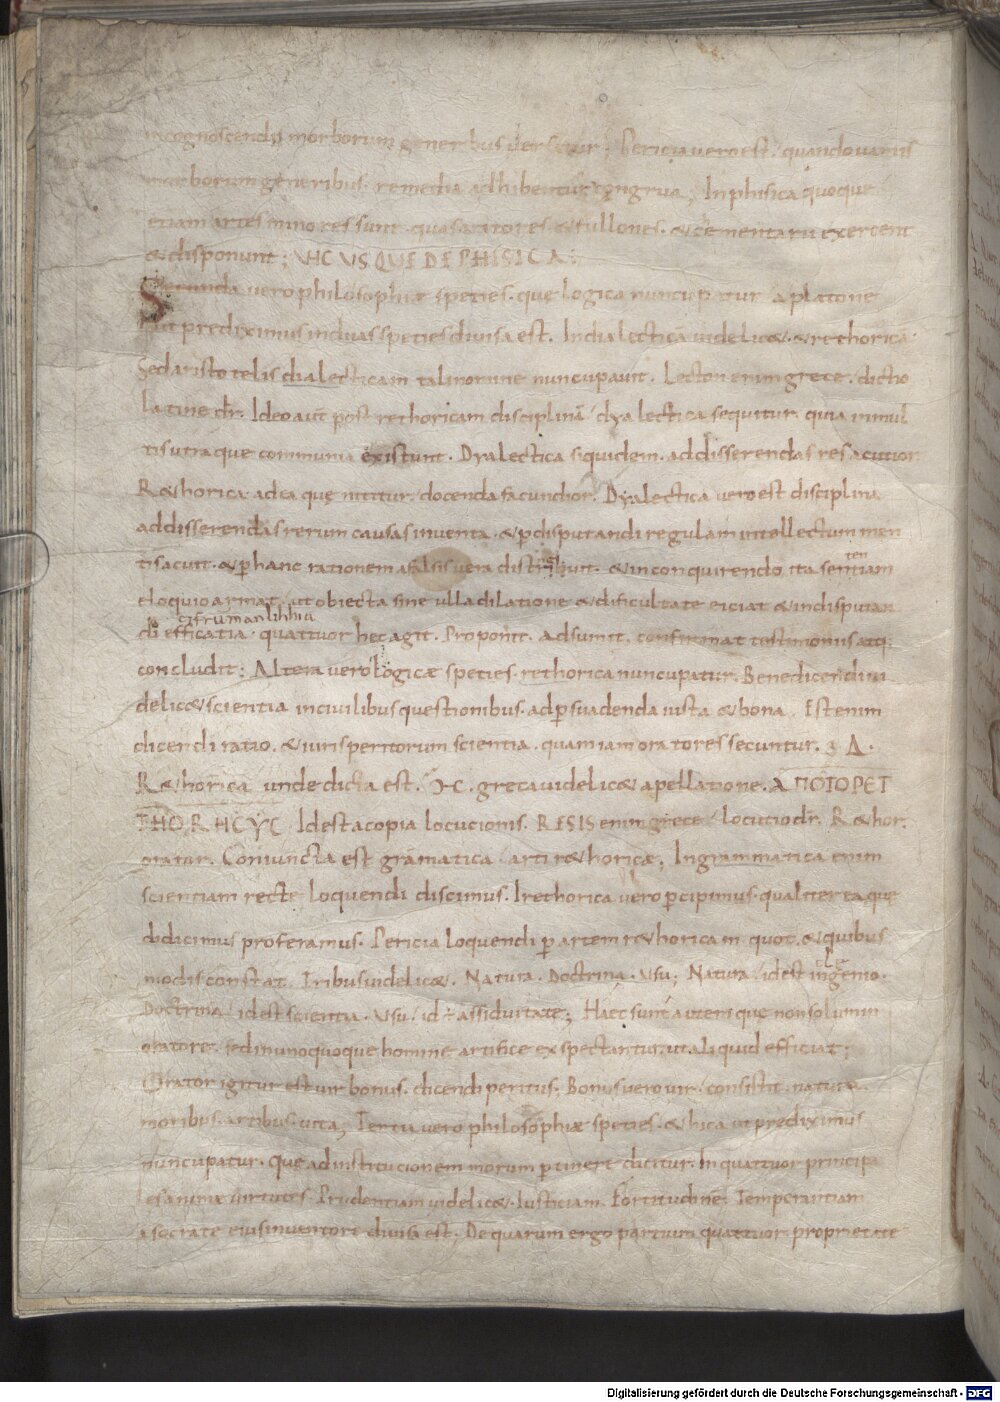 cognoscendis morborum generibus versatur; Pericia vero est. quando variis
morborum generibus. remedia adhibentur congrua; In phisica quoque
etiam artes minores sunt. quas aratores. & fullones. & cementarii exercent
& disponunt; HCVSQVE DE PHISICA:
Secunda vero philosophiæ species. que logica nuncupatur a platone
sicut prediximus in duas species divisa est. In dialecticā videlic&. & rethoricā.
Sed aristotelis dialecticam nuncupavit. Lecton enim grece. dictio
latine dr̄. Ideo aut post rethoricam disciplinā dyalectica sequitur. quia in mul
tis utraque communia existunt. Dyalectica siquidem. ad disserendas res acutior
R&horica ad ea quę nititur. docenda facundior. Dyalectica vero est disciplina
ad disserendas rerum causas inventa. & p disputandi regulam intellectum men
tis acuit. & p hanc rationem a falsis vera distinguit. & in conquirendo ita sentiam
ten
eloquio armat, ut obiecta sine ulla dilatione & dificultate eiciat & in disputan
gifrumanlihhiu
di efficatia. quattuor hec agit. Proponit. adsumit. confirmat testimoniis atq;
concludit; Altera vero logicæ species. rethorica nuncupatur. Bene dicendi vi
delic& scientia in civilibus questionibus. ad p suadenda iusta & bona. Est enim
dicendi ratio. & iuris peritorum scientia. quam iam oratores secuntur. Δ.
R&horica unde dicta est. greca videlic& apellatione. ΑΠΟΤΟΡΕΤ
Id est a copia locucionis. RESIS enim grece locutio dr̄. R&hor.
orator. Coniuncta est grāmatica arti r&horicæ; In grammatica enim
scientiam recte loquendi discimus. In rethorica vero p cipimus. qualiter ea que
didicimus proferamus. Pericia loquendi p artem r&horicam quot. & quibus
modis constat. Tribus videlic&. Natura. Doctrina. Usu; Natura id est ingenio.
Doctrina id est scientia. Usu id ē assiduitate; Haec sunt autem que non solum in
oratore. sed in unoquoque homine artifice exspectantur. ut aliquid efficiat;
Orator igitur est vir bonus. dicendi peritus; Bonus vero vir consistit. natura.
moribus. artibus. vita; Tertia vero philosophiæ species. &hica ut prediximus
nuncupatur. que ad institucionem morum p tinere dicitur. In quattuor principa
les animæ virtutes. Prudentiam videlic&. Iusticiam. Fortitudinē. Temperantiam
a socrate eius inventore divisa est; De quarum ergo partium quattuor proprietate
Digitalisierung gefördert durch die Deutsche Forschungsgemeinschaft - DFG